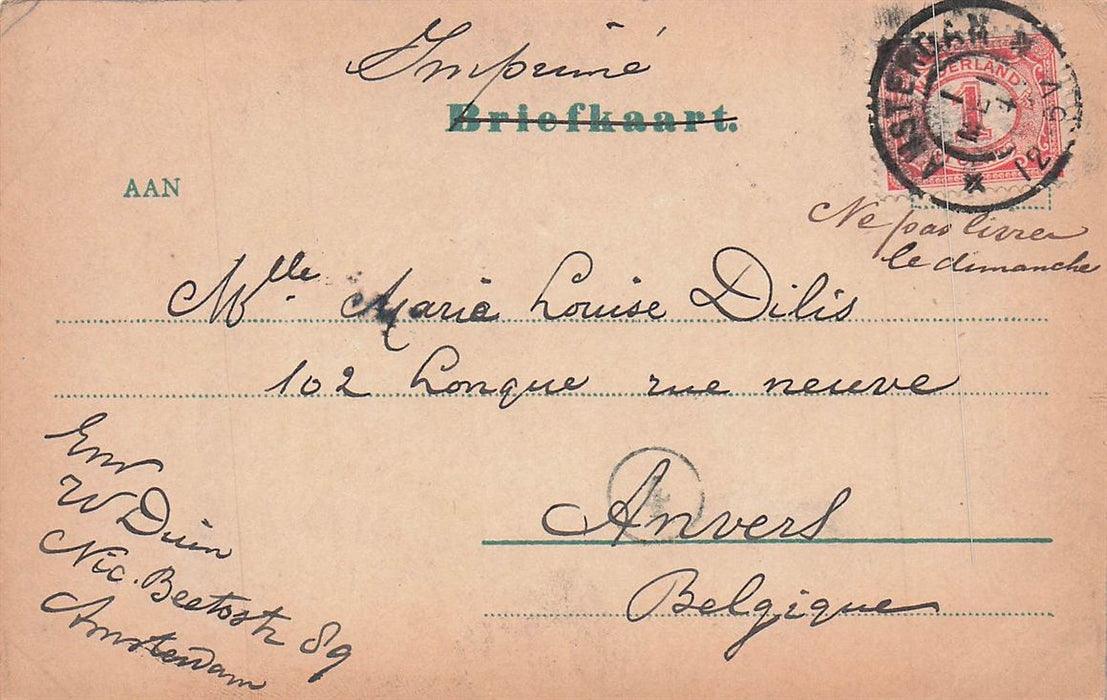 Imprimé
Briefkaart.
AMSTERDAM
NEDERLAND
1
12-5V
AAN
Ne pas livrer
le dimanche
Mlle. Marie Louise Dilis
102 Longue rue neuve
4
Anvers
Belgique
Env
W Duin
Nic. Beetsstr 89
Amsterdam